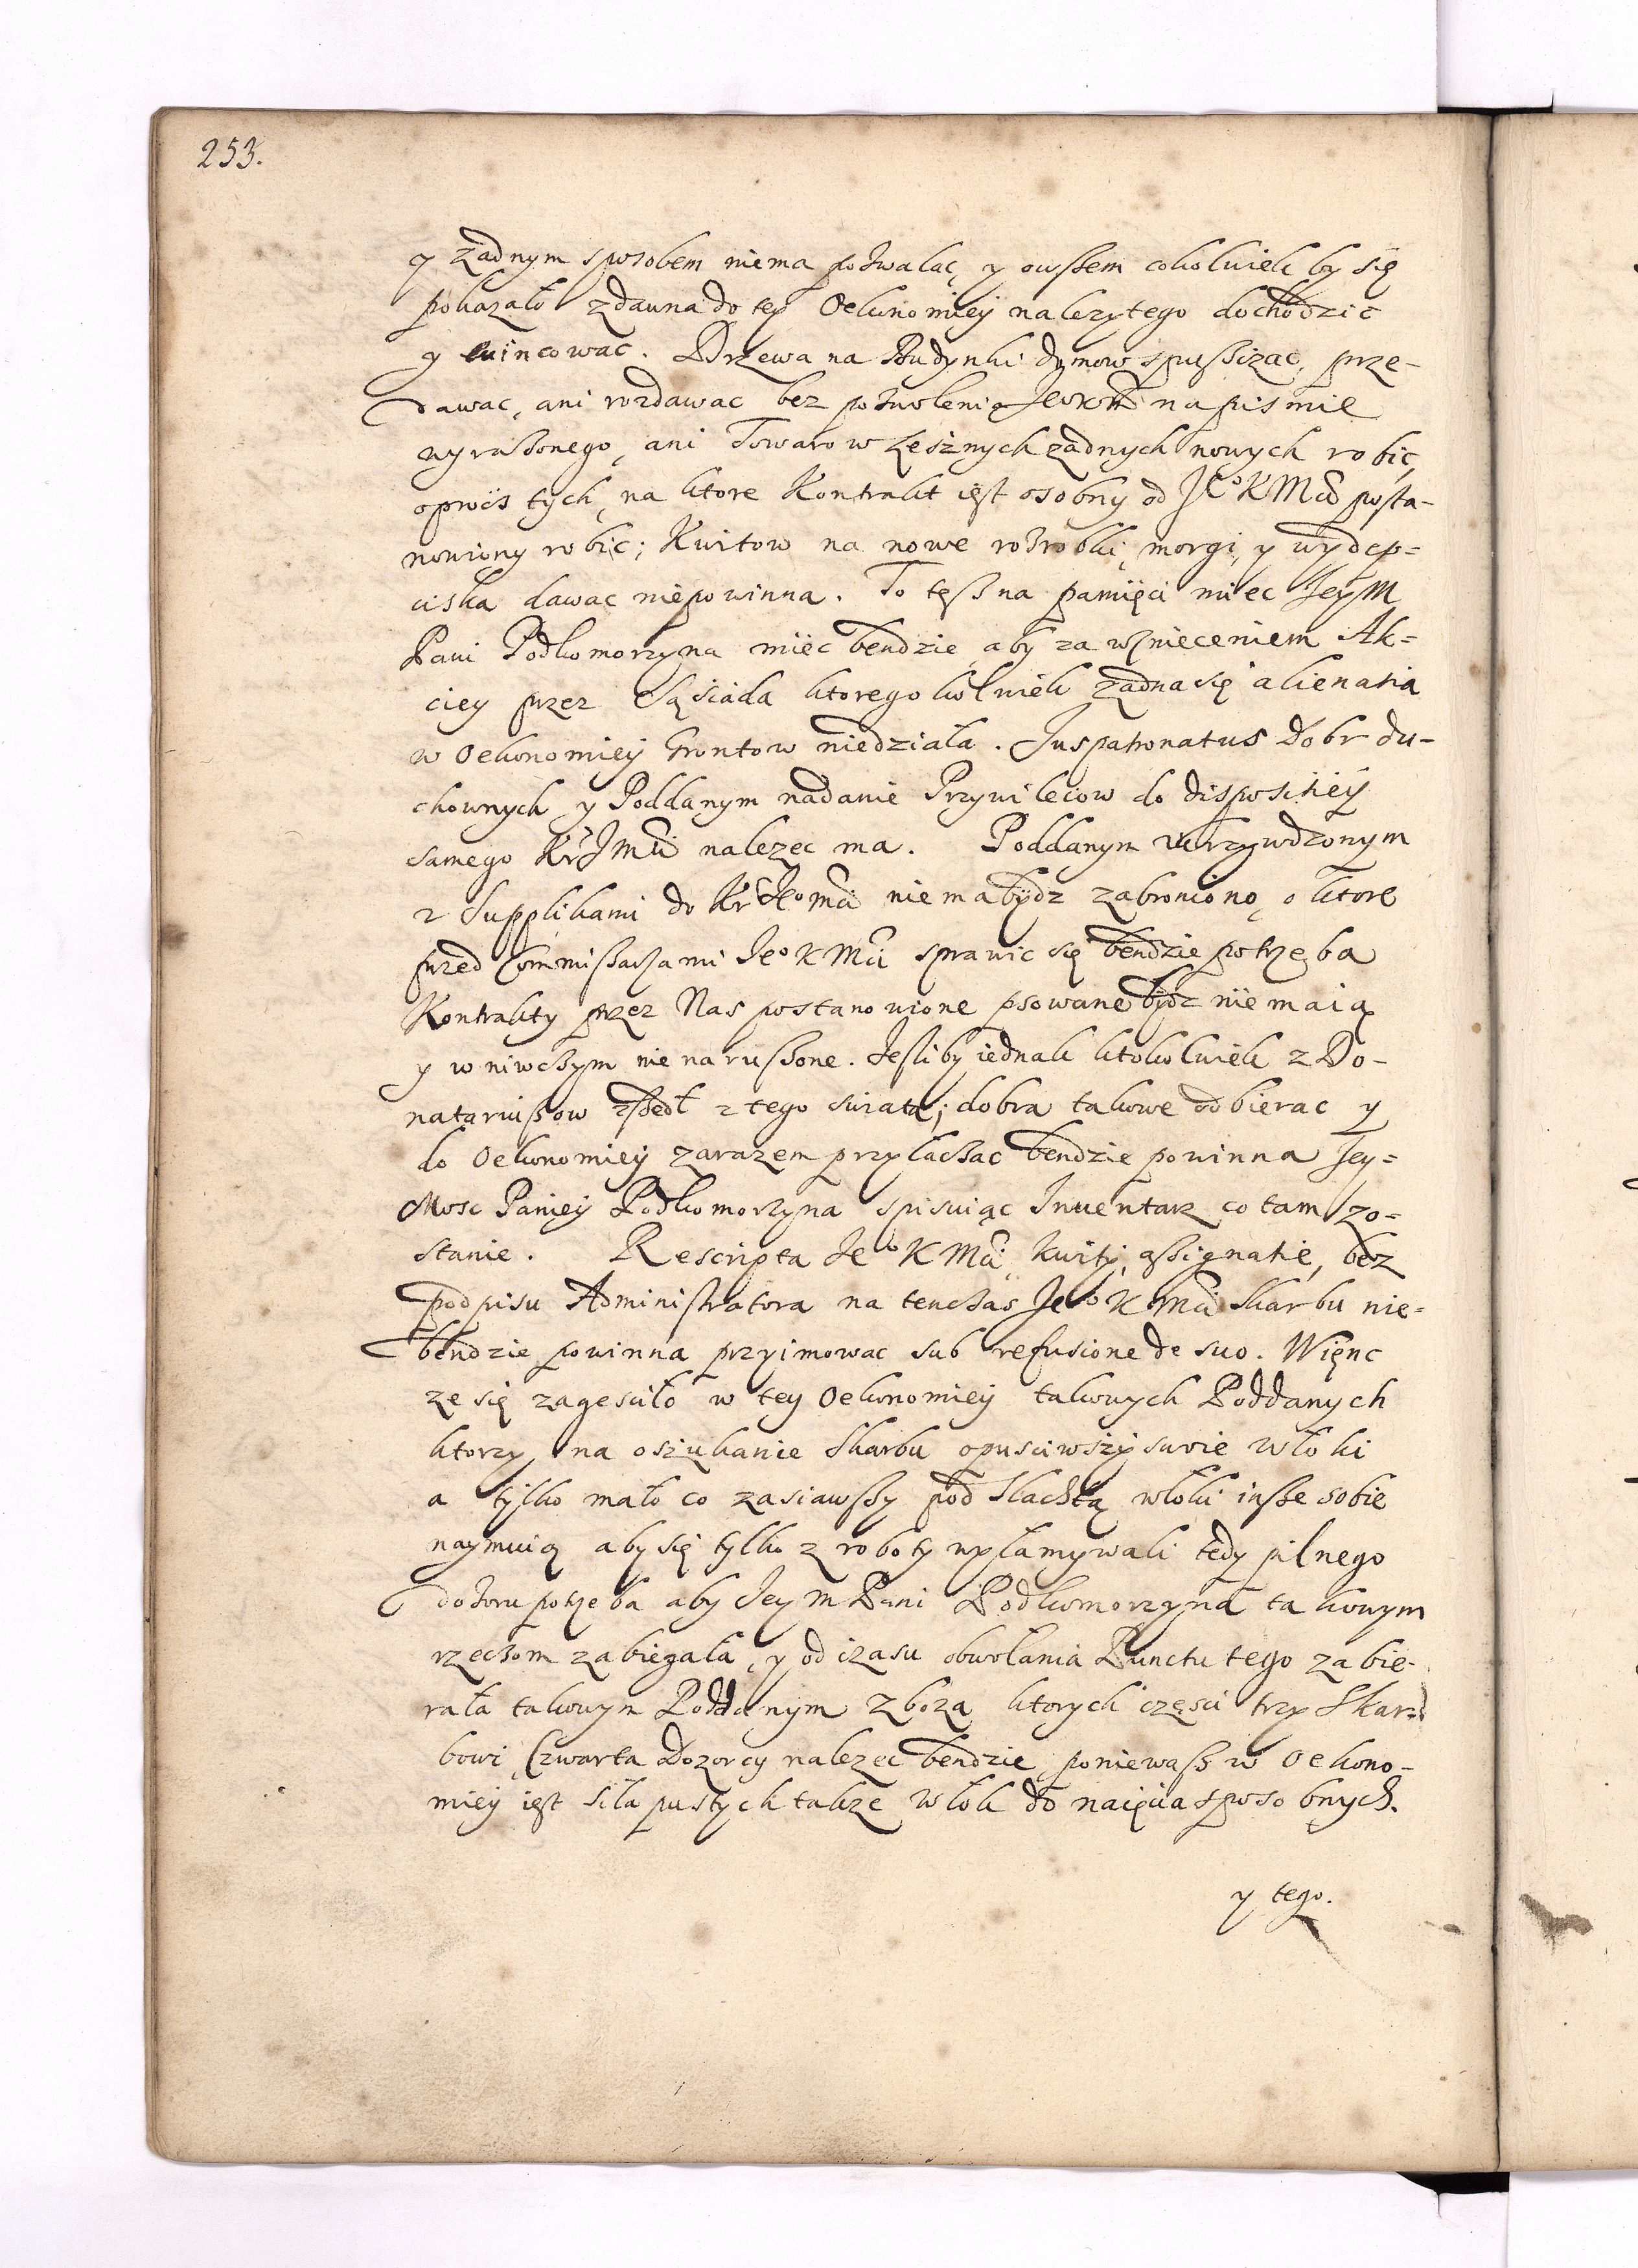 253.
y zadnym sposobem niema pozwalac, y owszem cokolwiek by się
pokazało zdawna do tey Oekonomiey nalezytego dochodzic
y ewincowac. Drzewa na Budynki dymow spusczac, prze-
dawac, ani rozdawac bez pozwolenia JeoKM na pismie
wyrazonego, ani Towarow Lesznych zadnych nowych robic,
oprocs tych, na ktore Kontrakt iest osobny od JeoKMci posta-
nowiony robic; Kwitow na nowe rozrobki, morgi, y wydep=
ciska dawac niepowinna. To tesz na pamięci miec JeyM
Pani Podkomorzyna miec bendzie, aby za wznieceniem Ak=
ciey przez Sąsiada ktoregokolwiek zadna się alienatia
w Oekonomiey Grontow niedziała. Juspatronatus Dobr du-
chownych y Poddanym nadanie Przywileiow do disposiciey
samego KrJMci nalezec ma. Poddanym ukrzywdzonym
z Supplikami do KrJeomci niema bydz zabroniono, o ktore
przed Commissarzami JeoKMci sprawic się bendzie potrzeba
Kontrakty przez Nas postanowione psowane bydz nie maią
y w niwczym nie naruszone. Jesliby iednak ktokolwiek z Do-
natariuszow zszedł z tego swiata; dobra takowe odbierac y
do Oekonomiey zarazem przyłaczac bendzie powinna Jey=
Mosc Paniey Podkomorzyna spisuiąc Inventarz co tam zo=
stanie. Rescripta JeoKMci, kwity, assignatie, bez
podpisu Administratora na tenczas JeoKMci Skarbu nie=
bendzie powinna przyimowac sub refusione de suo. Więnc
ze się zagesciło w tey Oekonomiey takowych Poddanych
ktorzy na oszukanie Skarbu opusciwszy swoie Włoki
a tylko mało co zasiawszy pod Slachtą włoki insze sobie
naymuią aby się tylko z roboty wyłamywali tedy pilnego
dozoru potrzeba aby JeyM Pani Podkomorzyna takowym
rzeczom zabiegała, y od czasu obwołania Punctu tego zabie-
rała takowym Poddanym zboza ktorych częsci trzy Skar=
bowi, Czwarta Dozorcy nalezec bendzie, poniewasz w Oekono-
miey iest siła pustych takze Włok do naięcia sposobnych.
y tego.